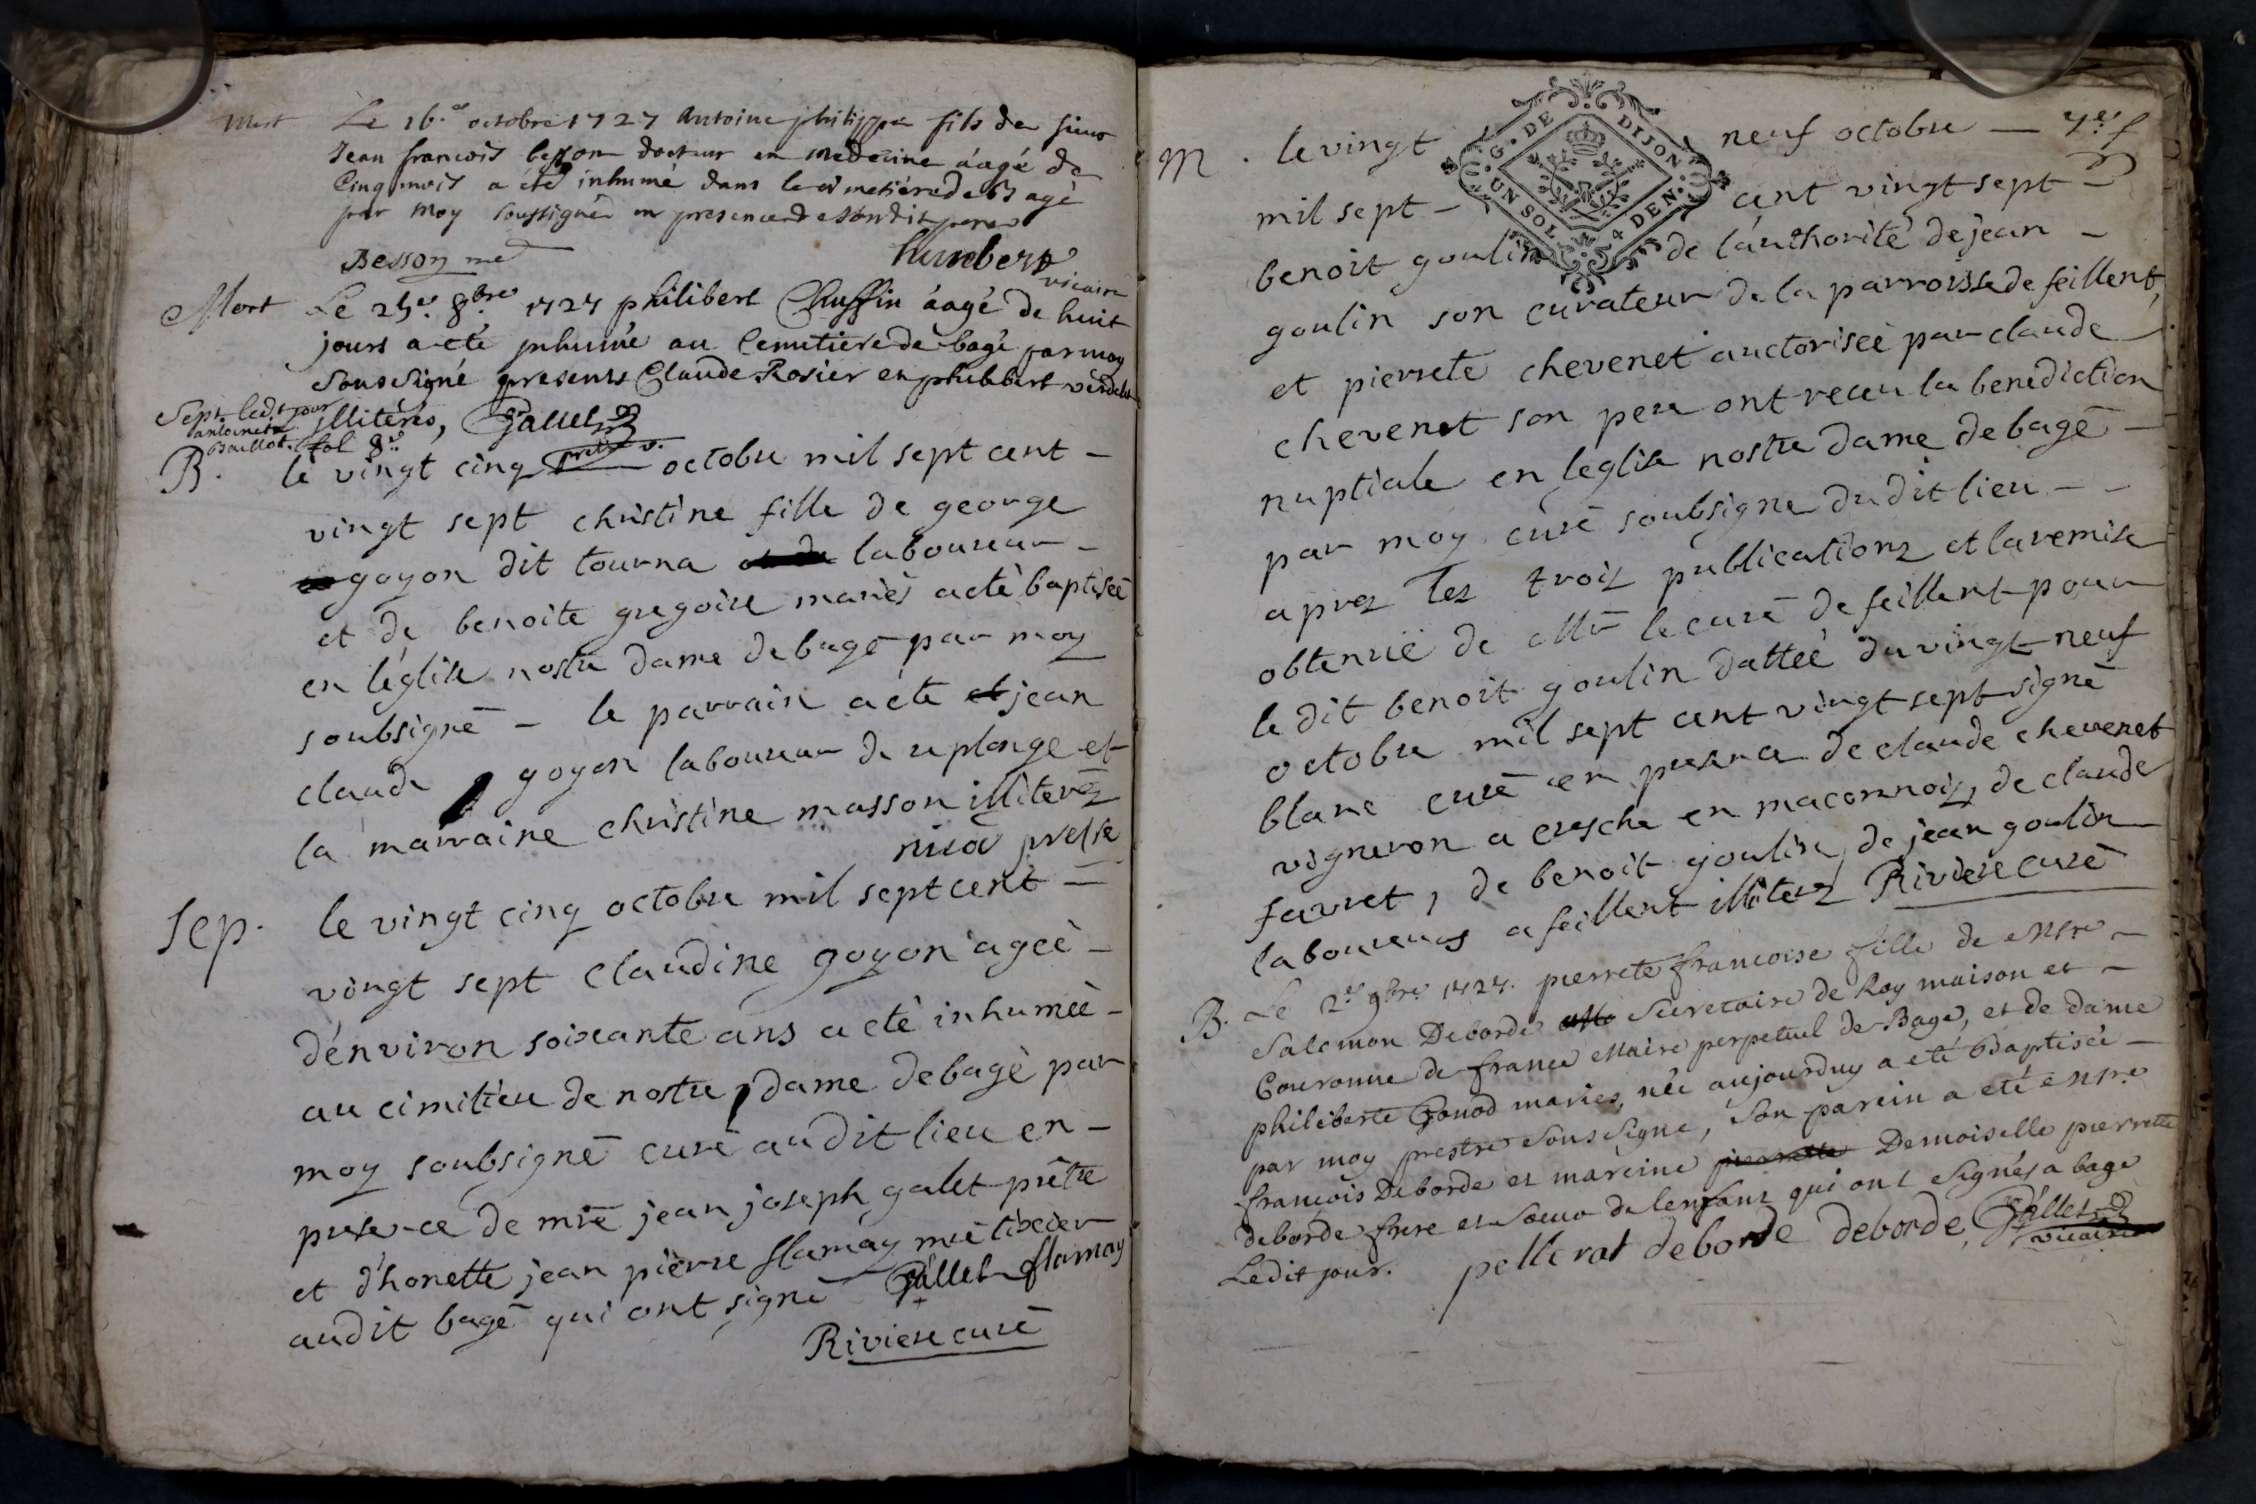 Mort Le 16.e octobre 1727 Antoine philippe fils de sieur
Jean francois besson docteur en medecine áagé de
Cinq mois a été inhumé dans le cimetiére de Bagé
par moy soussigné en presence de son dit pere
Besson md humbert
vicaire
Mort Le 25.e 8.bre 1727 philibert Chuffin áagé de huit
jours a eté inhumé au Cemitiere de bagé par moy
Soussigné presents Claude Rosier et philibert verdelet
illiterés, Gallet
ptre v.
Sept. ledt jour
antoinete
Baillot. fol 8.e
B. le vingt cinq octobre mil sept cent -
vingt sept christine fille de george
goyon dit tourna laboureur -
et de benoite gregoire mariés a eté baptiseé
en léglise nostre dame de bagé par moy
soubsigné - le parrain a eté jean
claude goyon laboureur de replonge et
la marraine christine masson illiterez
niioa prestre
Sep. le vingt cinq octobre mil sept cent -
vingt sept claudine goyon ageé -
dénviron soixante ans a eté inhumeé -
au cimitiere de nostre dame de bagé par
moy soubsigné curé au dit lieu en -
presence de mre jean joseph galet prêtre
et d'honette jean pierre flamay me tixier
audit bagé qui ont signé Gallet flamay
Riviere curé
G. DE DIJON
UN SOL 4 DEN.
M. le vingt neuf octobre - 7.e f
mil sept - cent vingt sept -
benoit goulin de láuthorité de jean -
goulin son curateur de la parroisse de feillent,
et pierrete chevenet auctorisée par claude
chevenet son pere ont receu la benediction
nuptiale en leglise nostre dame de bagé -
par moy curé soubsigne du dit lieu - -
aprez les trois publications et la remise
obtenuë de Mr le curé de feillent pour
le dit benoit goulin datteé du vingt neuf
octobre mil sept cent vingt sept signé
blanc curé en presence de claude chevenet
vigneron a cresche en maconnois, de claude
favret, de benoit goulin, de jean goulin
laboureurs a feillent illiterez Riviere curé
B. Le 2.e 9bre 1727. pierrete francoise fille de Mre -
Salomon Deborde Secretaire de Roy maison et -
Couronne de france Maire perpetuel de Bagé, et de dame
philiberte Gonod maries, née aujourduy a eté Baptisée -
par moy prestre Soussigné, Son parein a eté Mr.e
françois Deborde et mareine pierrette Demoiselle pierrette
deborde frere et Soeur de lenfant qui ont Signés a bagé
Ledit jour. pellerat deborde deborde, Gallet
vicaire